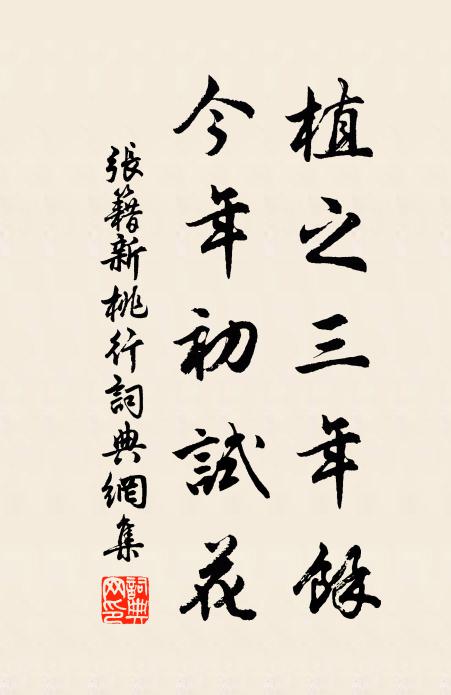 植之三年餘
今年初試花
張籍新桃行詞典網集
詞典網印